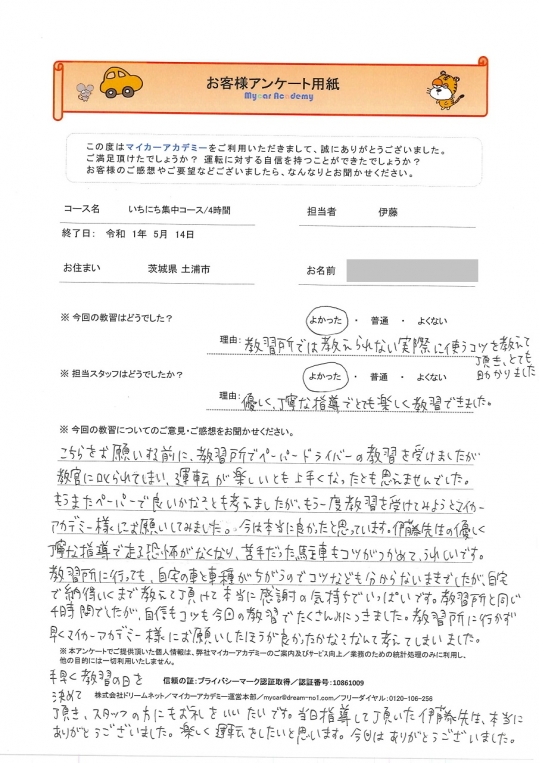 お客様アンケート用紙
Mycar Academy
この度はマイカーアカデミーをご利用いただきまして、誠にありがとうございました。
ご満足頂けたでしょうか？ 運転に対する自信を持つことができたでしょうか？
お客様のご感想やご要望などございましたら、なんなりとお聞かせください。
コース名 いちにち集中コース/4時間 担当者 伊藤
終了日： 令和 1年 5月 14日
お住まい 茨城県 土浦市 お名前
※ 今回の教習はどうでした？ よかった ・ 普通 ・ よくない
理由： 教習所では教えられない実際に使うコツを教えて
頂き、とても
助かりました
※ 担当スタッフはどうでしたか？ よかった ・ 普通 ・ よくない
理由： 優しく、丁寧な指導でとても楽しく教習できました。
※ 今回の教習についてのご意見・ご感想をお聞かせください。
こちらをお願いする前に、教習所でペーパードライバーの教習を受けましたが
教官に叱られてしまい、運転が楽しいとも上手くなったとも思えませんでした。
もうまたペーパーで良いかな？とも考えましたが、もう一度教習を受けてみようとマイカー
アカデミー様にお願いしてみました。今は本当に良かったと思っています。伊藤先生の優しく
丁寧な指導で走る恐怖がなくなり、苦手だった駐車もコツがつかめて、うれしいです。
教習所に行っても、自宅の車と車種がちがうのでコツなども分からないままでしたが、自宅
で納得いくまで教えて頂けて本当に感謝の気持ちでいっぱいです。教習所と同じ
4時間でしたが、自信もコツも今回の教習でたくさんみにつきました。教習所に行かず
早くマイカーアカデミー様にお願いしたほうが良かったかな？なんて考えてしまいました。
※ 本アンケートでご提供頂いた個人情報は、弊社マイカーアカデミーのご案内及びサービス向上／業務のための統計処理のみに利用し、
他の目的には一切利用いたしません。
手早く教習の日を 信頼の証：プライバシーマーク認証取得／認証番号：10861009
決めて 株式会社ドリームネット／マイカーアカデミー運営本部／mycar@dream-no1.com／フリーダイヤル：0120-106-256
頂き、スタッフの方にもお礼をいいたいです。当日指導して頂いた伊藤先生は、本当に
ありがとうございました。楽しく運転をしたいと思います。今回はありがとうございました。